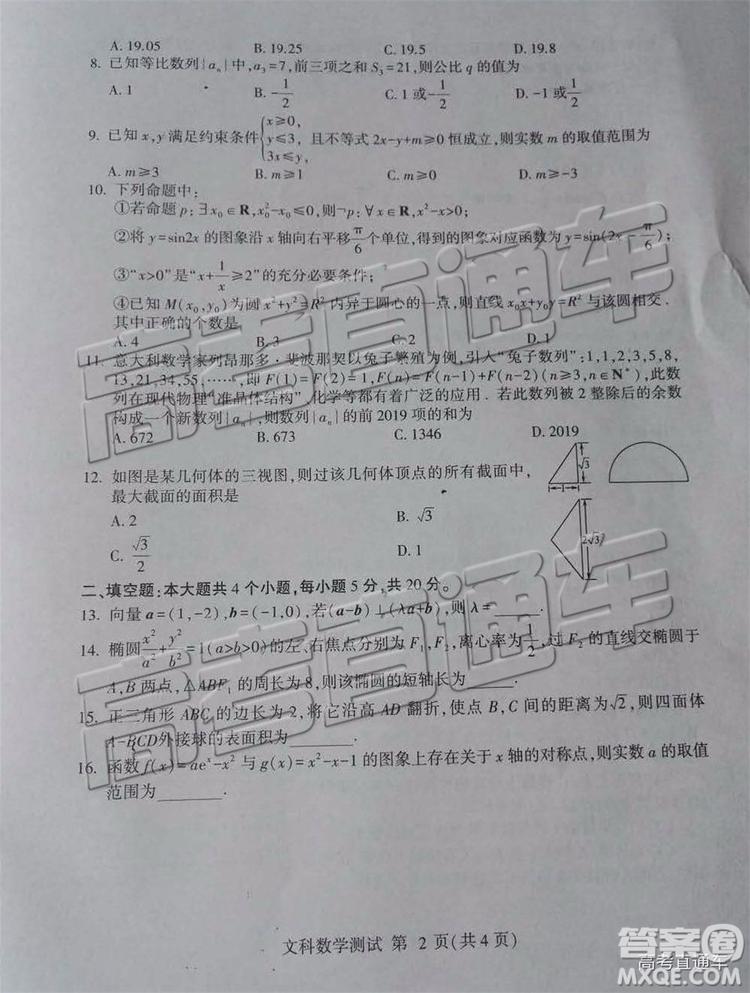 A. 19.05 B. 19.25 C. 19.5 D. 19.8
8. 已知等比数列{aₙ}中,a₃=7,前三项之和 S₃=21,则公比 q 的值为
A. 1 B. -1/2 C. 1 或-1/2 D. -1 或1/2
9. 已知 x,y 满足约束条件{x≥0, y≤3, 3x≤y, 且不等式 2x-y+m≥0 恒成立,则实数 m 的取值范围为
A. m≥3 B. m≥1 C. m≥0 D. m≥-3
10. 下列命题中:
①若命题 p:∃x₀∈R,x₀²-x₀≤0,则¬p:∀x∈R,x²-x>0;
②将 y=sin2x 的图象沿 x 轴向右平移π/6个单位,得到的图象对应函数为 y=sin(2x-π/6);
③“x>0”是“x+1/x≥2”的充分必要条件;
④已知 M(x₀,y₀)为圆 x²+y²=R² 内异于圆心的一点,则直线 x₀x+y₀y=R² 与该圆相交.
其中正确的个数是
A. 4 B. 3 C. 2 D. 1
11. 意大利数学家列昂那多·斐波那契以兔子繁殖为例,引入“兔子数列”:1,1,2,3,5,8,
13,21,34,55,……,即 F(1)=F(2)=1,F(n)=F(n-1)+F(n-2)(n≥3,n∈N*),此数
列在现代物理“准晶体结构”、化学等都有着广泛的应用. 若此数列被 2 整除后的余数
构成一个新数列{aₙ},则数列{aₙ}的前 2019 项的和为
A. 672 B. 673 C. 1346 D. 2019
12. 如图是某几何体的三视图,则过该几何体顶点的所有截面中,
最大截面的面积是
A. 2 B. √3
C. √3/2 D. 1
√3
1
2√3
二、填空题:本大题共 4 个小题,每小题 5 分,共 20 分。
13. 向量 a=(1,-2),b=(-1,0),若(a-b)⊥(λa+b),则 λ=______.
14. 椭圆x²/a²+y²/b²=1(a>b>0)的左、右焦点分别为 F₁,F₂,离心率为1/2,过 F₂ 的直线交椭圆于
A,B 两点,△ABF₁ 的周长为 8,则该椭圆的短轴长为______.
15. 正三角形 ABC 的边长为 2,将它沿高 AD 翻折,使点 B,C 间的距离为√2,则四面体
A-BCD外接球的表面积为______.
16. 函数 f(x)=aeˣ-x² 与 g(x)=x²-x-1 的图象上存在关于 x 轴的对称点,则实数 a 的取值
范围为______.
文科数学测试 第 2 页(共 4 页)
高考直通车
高考直通车
答案圈
高考直通车
MXQE.COM